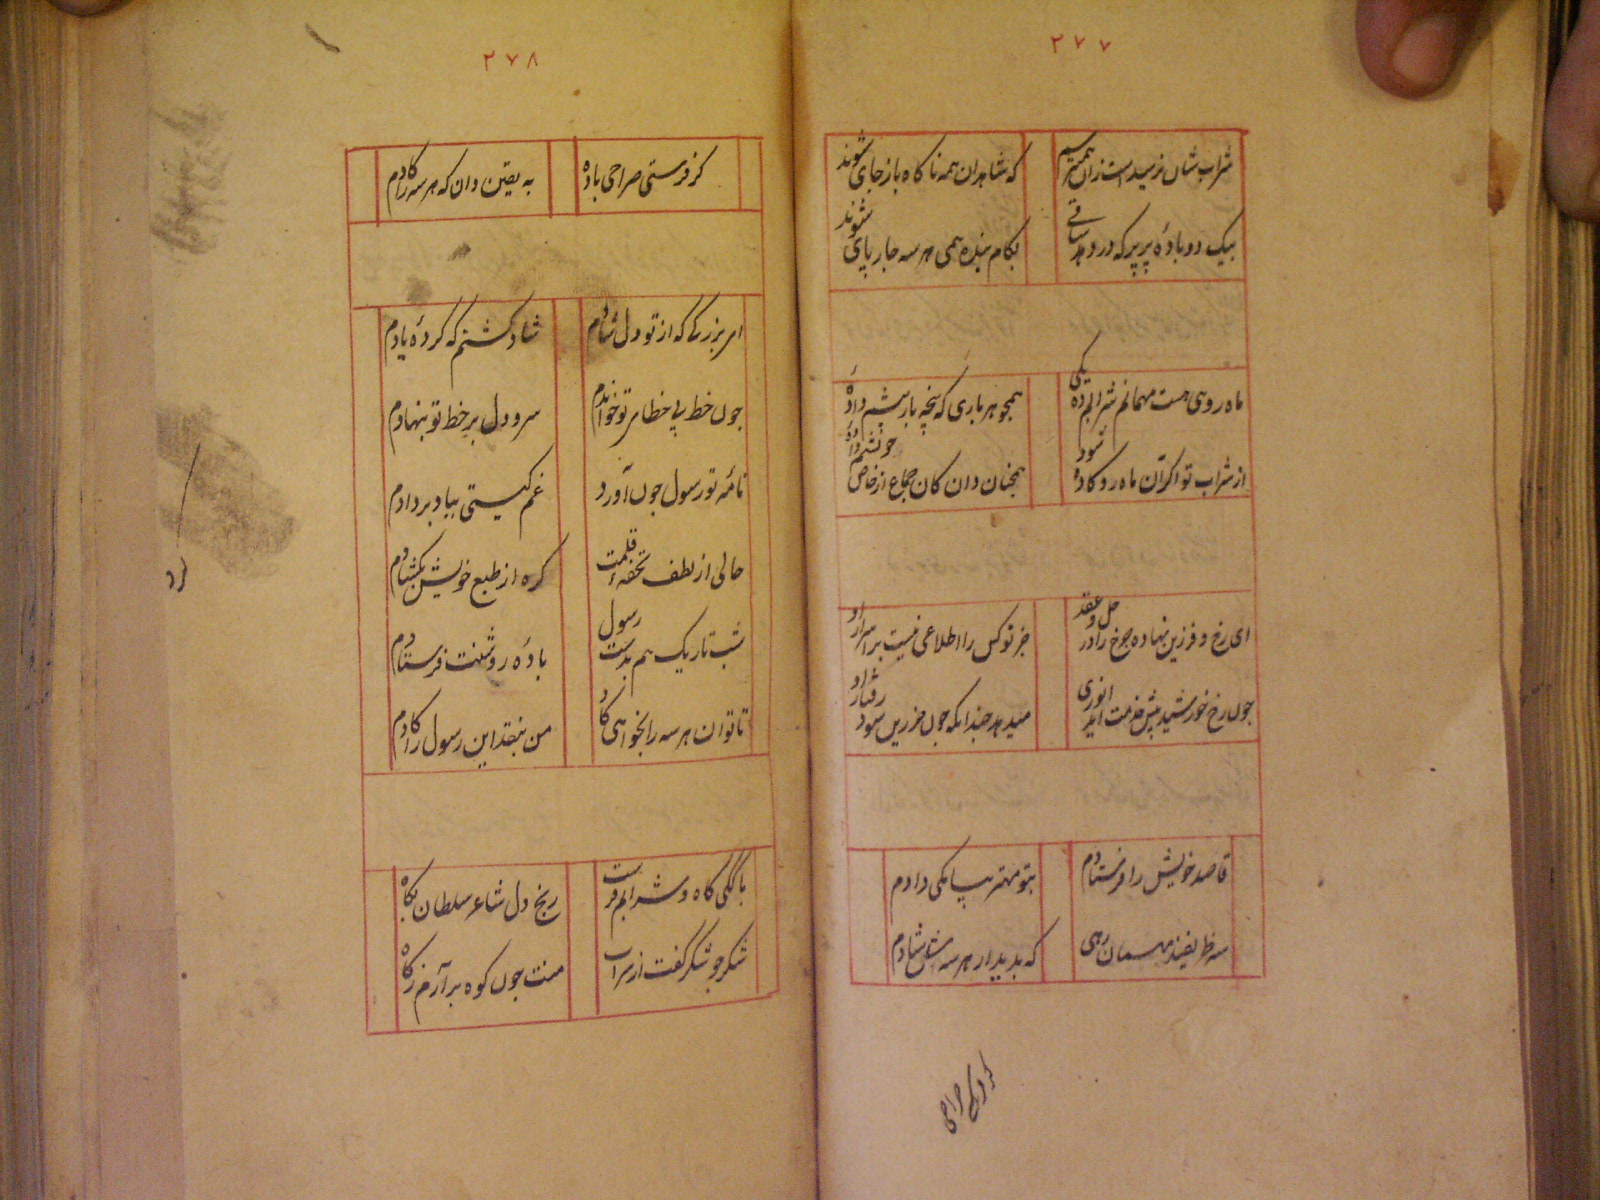 ۲۷۷
شراب شان نرسیدست زان همیترسم
که شاهدان همه ناکاه باز جای شوند
بیک دو بادهٔ پر پر که در دهد ساقی
بکام بنده همی هر سه چار پای شوند
ماه روی هست مهمانم شرابم ده یکی
همچو هر باری که نخته بار پیشم دادهٔ
از شراب تو اکر آن ماه رو کاده شود
همچنان دان کان جماع از خاص خویشم دادهٔ
ای رخ و فرزین نهاده چرخ را در حل و عقد
جز تو کس را اطلاعی نیست بر اسرار او
چون رخ خورشید پیش خدمت آید انوری
میدهد چندانکه چون فرزین شود رفتار او
قاصد خویش را فرستادم
بتو مهتر پیامکی دادم
سه ظریفند میهمان رهی
که بدیدار هر سه شان شادم
کر فرستی صراحی
۲۷۸
کر فرستی صراحی باده
به یقین دان که هر سه را کادم
ای بزرکی که از تو دل شادم
شاد کشتم که کردهٔ یادم
چون خط بی خطای تو خواندم
سر و دل بر خط تو بنهادم
نامهٔ تو رسول چون آورد
غم کیتی بباد بردادم
حالی از لطف تحفهٔ قلمت
کره از طبع خویش بکشادم
شب تاریک هم بدست رسول
بادهٔ روشنت فرستادم
تا توان هر سه را بخواهی کاد
من بنقد این رسول را کادم
با کلی کاه و شرابم فرست
رنج دل شاعر سلطان بکاه
شکر جو شکر کفت از سراب
منت چون کوه برآرم ز کاه